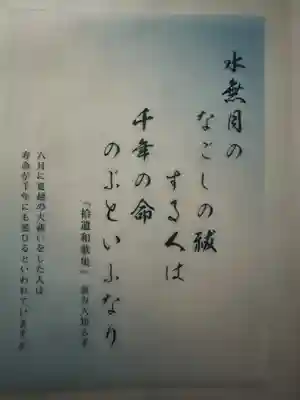 水無月の
なごしの祓
する人は
千年の命
のぶといふなり
『拾遺和歌集』 読人知らず
六月に夏越の大祓いをした人は
寿命が千年にも延びるといわれています。